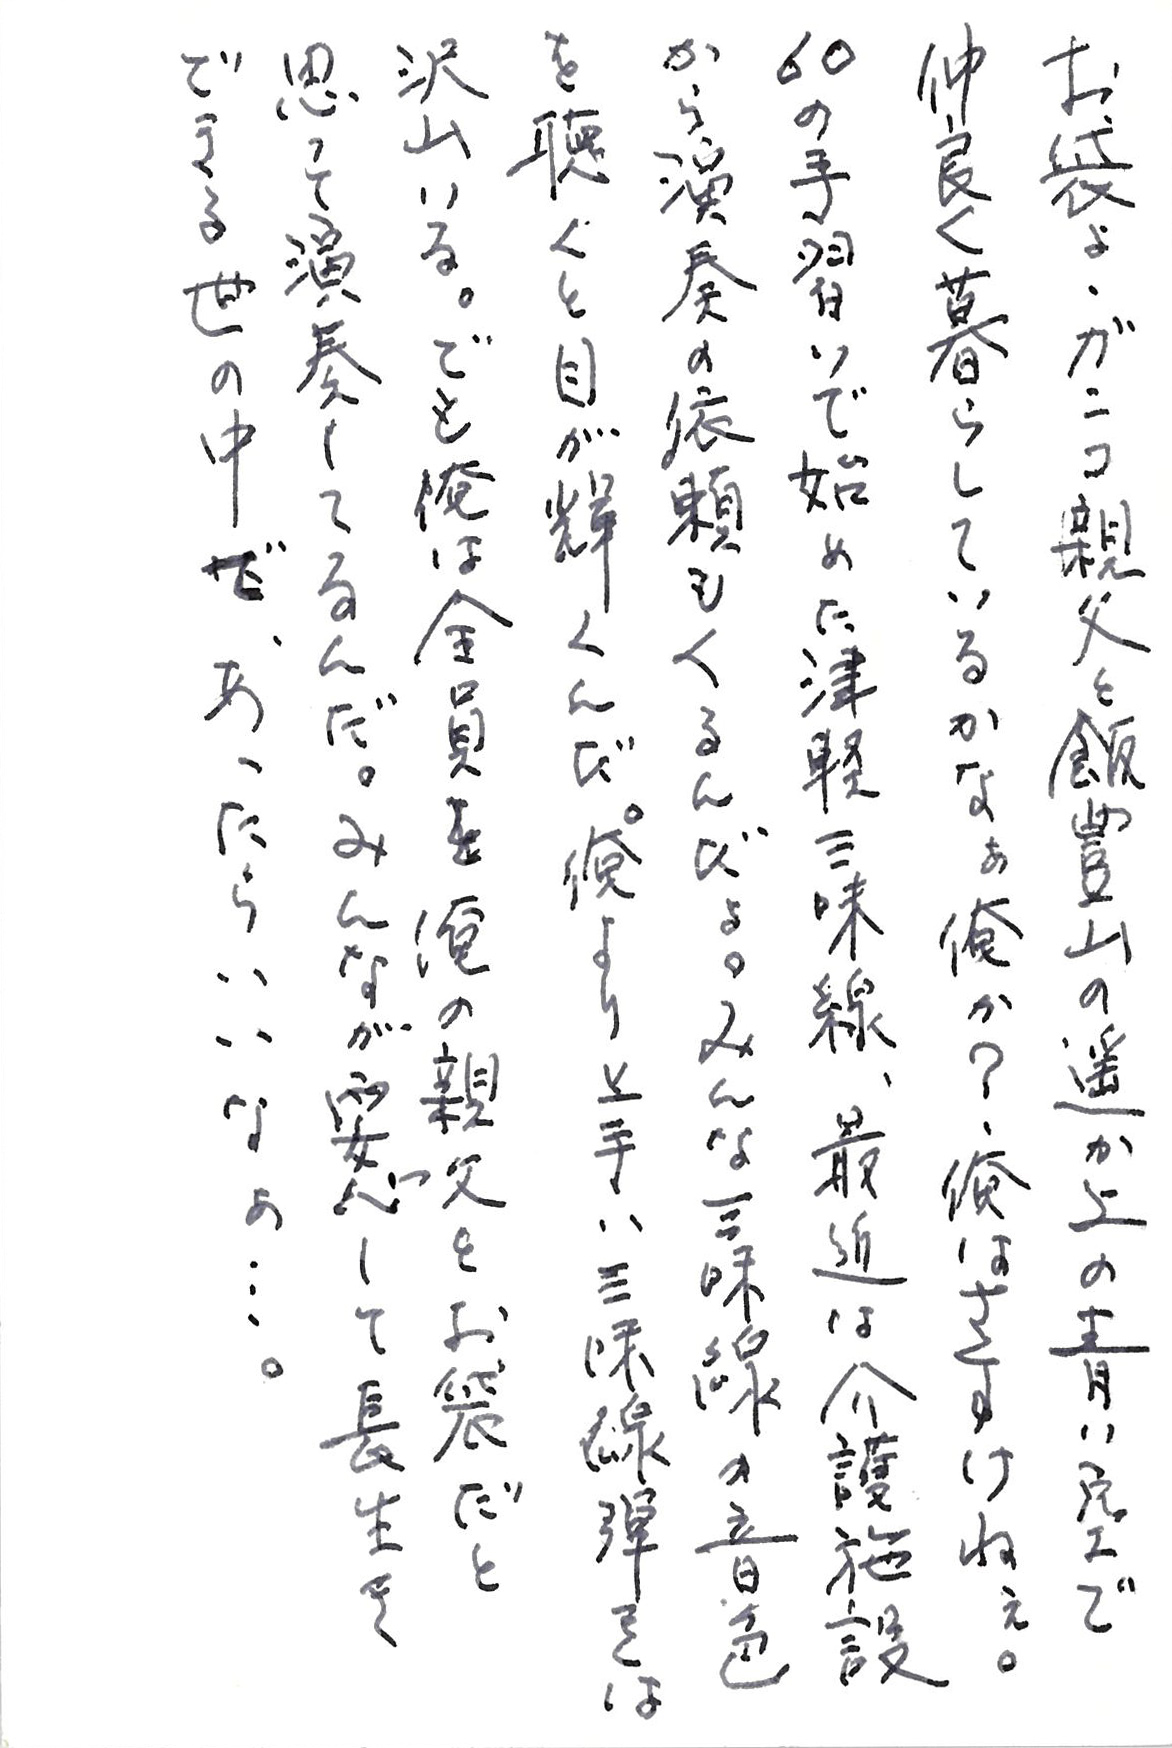 お袋よ、ガンコ親父と飯豊山の遥か上の青い空で
仲良く暮らしているかなぁ俺か?、俺はさすけねぇ。
60の手習いで始めた津軽三味線、最近は介護施設
から演奏の依頼もくるんだよ。みんな三味線の音色
を聴くと目が輝くんだ。俺より上手い三味線弾きは
沢山いる。でも俺は全員を俺の親父とお袋だと
思って演奏してるんだ。みんなが安心して長生き
できる世の中が、あったらいいなぁ…。